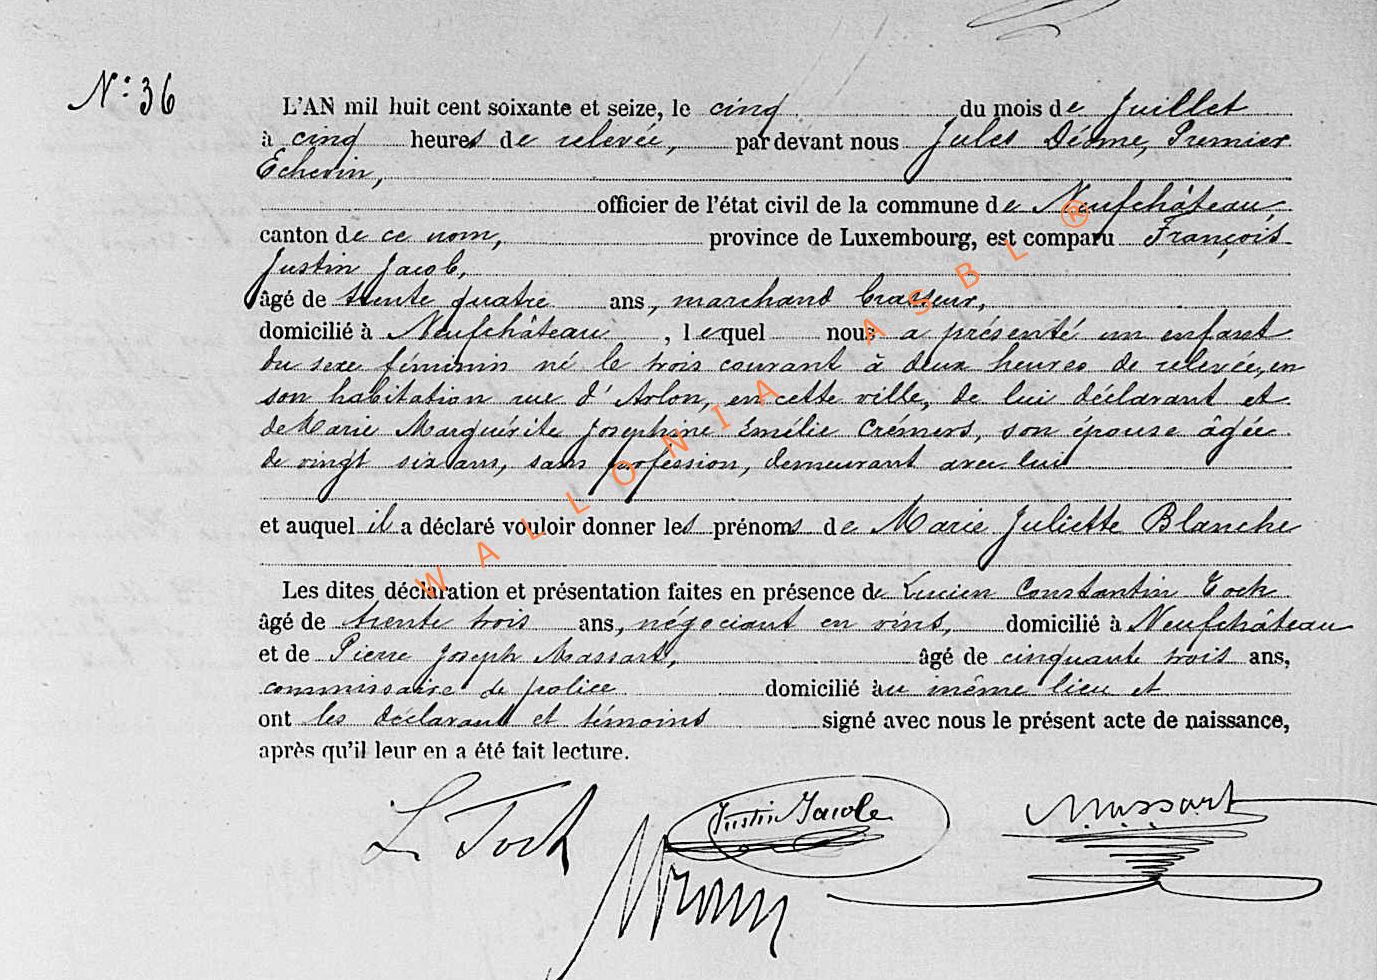 N.° 36
L'AN mil huit cent soixante et seize, le cinq du mois de Juillet
à cinq heures de relevée, par devant nous Jules Premier
Echevin,
officier de l'état civil de la commune de Neufchâteau,
canton de ce nom, province de Luxembourg, est comparu François
Justin Jacob,
âgé de trente quatre ans, marchand brasseur,
domicilié à Neufchâteau, lequel nous a présenté un enfant
du sexe féminin né le trois courant à deux heures de relevée, en
son habitation rue d'Arlon, en cette ville, de lui déclarant et
de Marie Marguérite Josephine Emélie Crémers, son épouse âgée
de vingt six ans, sans profession, demeurant avec lui
et auquel il a déclaré vouloir donner les prénoms de Marie Juliette Blanche
Les dites déclaration et présentation faites en présence de Lucien Constantin Tock
âgé de trente trois ans, négociant en vins, domicilié à Neufchâteau
et de Pierre Joseph Massart, âgé de cinquante trois ans,
commissaire de police domicilié au même lieu et
ont les déclarant et témoins signé avec nous le présent acte de naissance,
après qu'il leur en a été fait lecture.
L. Tock Justin Jacob Massart
WALLONIA ASBL ®